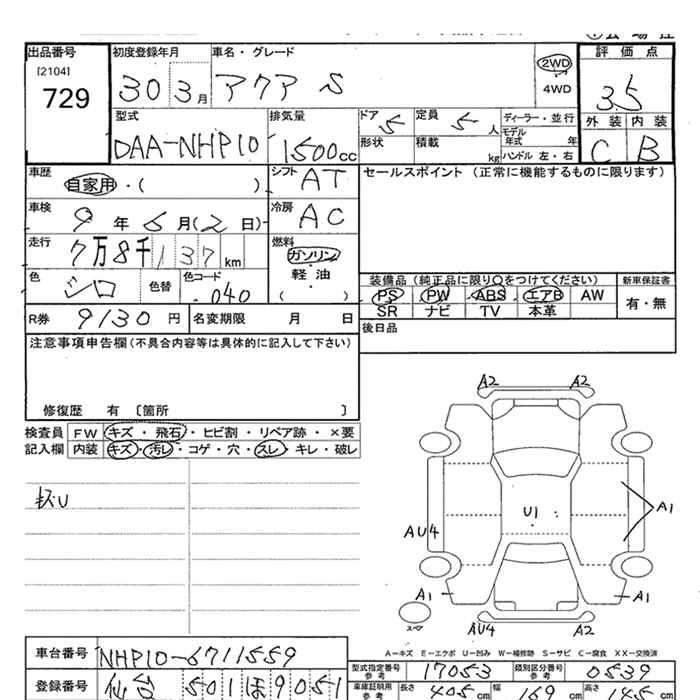 出品番号
[2104]
729
初度登録年月
30 3月
車名・グレード
アクア S
2WD
4WD
評価点
3.5
外装 内装
C B
型式
DAA-NHP10
排気量
1500cc
ドア 5
定員 5人
形状
積載 kg
ディーラー・並行
モデル年式 年
ハンドル 左・右
車歴
自家用・( )
シフト AT
セールスポイント (正常に機能するものに限ります)
車検
9年6月(2日)
冷房 AC
走行
7万8千137km
燃料
ガソリン
軽・油
( )
色 シロ
色替
色コード 040
装備品 (純正品に限り○をつけてください)
PS PW ABS エアB AW
SR ナビ TV 本革
新車保証書
有・無
R券 9130円
名変期限 月 日
後日品
注意事項申告欄(不具合内容等は具体的に記入して下さい)
修復歴 有 〔箇所 〕
検査員記入欄
FW キズ・飛石・ヒビ割・リペア跡・×要
内装 キズ・汚レ・コゲ・穴・スレ・キレ・破レ
A2 A2
U1
AU4
A1
A1 A1
スペア
AU4 A2
A-キズ E-エクボ U-凹み W-補修跡 S-サビ C-腐食 XX-交換済
車台番号 NHP10-6711559
型式指定番号 参考 17053
類別区分番号 参考 0539
登録番号 仙台 501ほ9051
車庫証明用 参考 長さ 405cm 幅 169cm 高さ 145cm